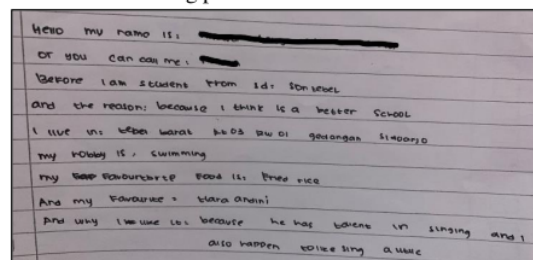 Hello my name is:
or you can call me:
Before I am student from sd: SDN tebel
and the reason: because I think is a better School
I live in: tebel barat Rt 03 Rw 01 gedangan Sidoarjo
my hobby is, swimming
my Favouritere Food is: Fried rice
And my Favourite: tiara andini
And why I like is: because he has talent in singing and i
also happen to like sing a